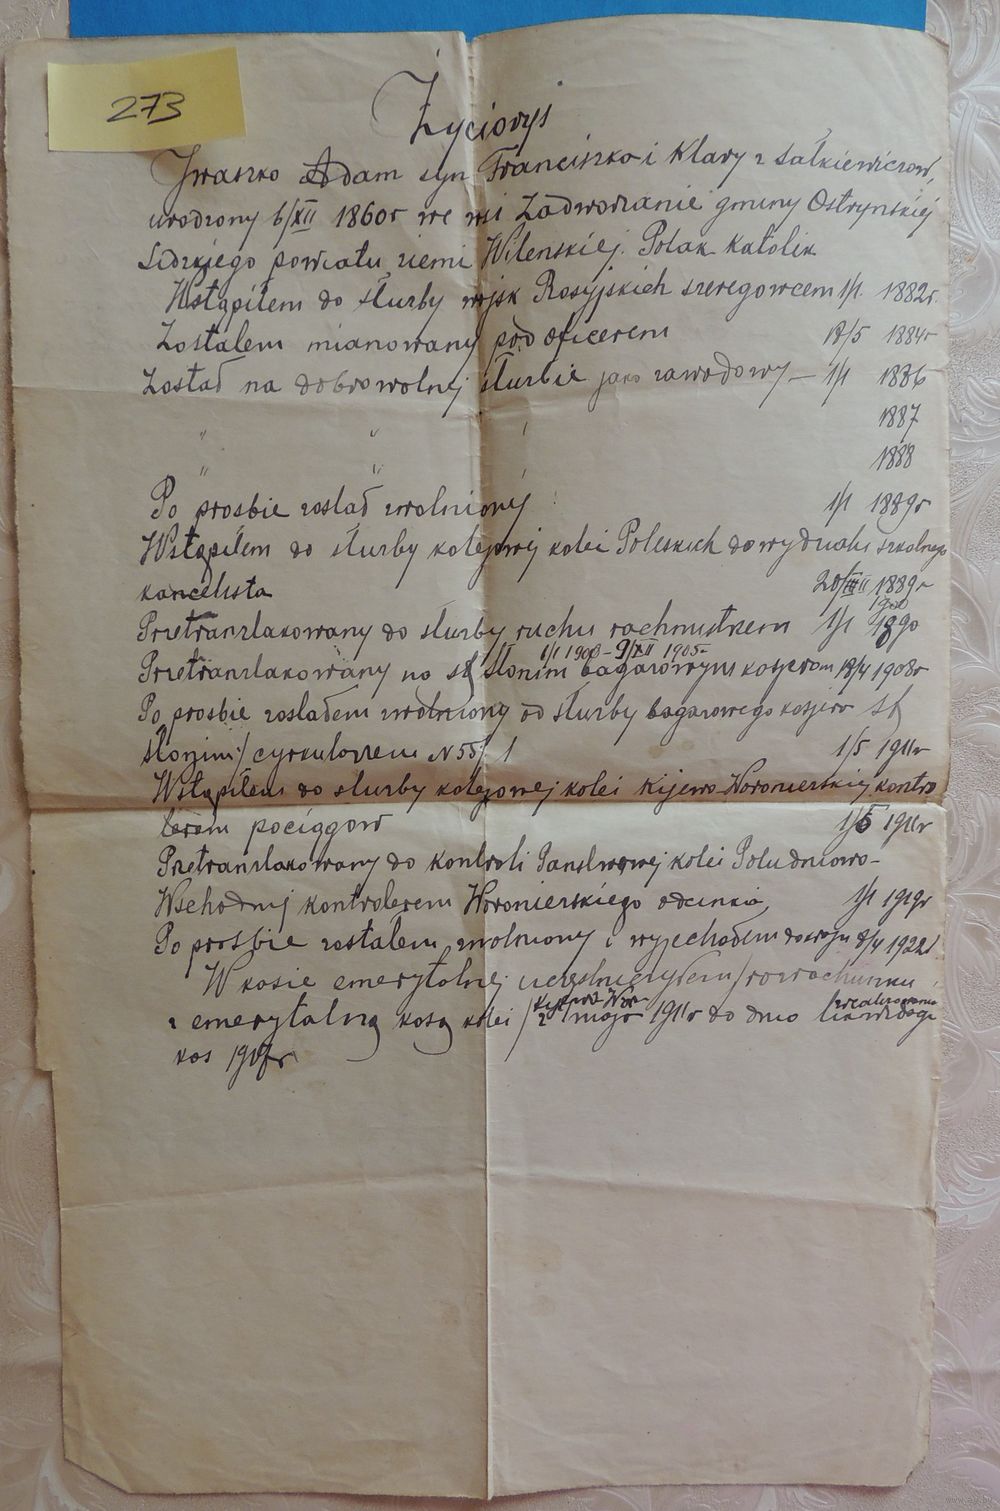 273
Życiorys
Iwaszko Adam syn Franciszka i Klary z Sałkiewiczow,
urodzony 6/XII 1860r we wsi Zadworzanie gminy Ostrynskiej
Lidzkiego powiatu ziemi Wilenskiej. Polak katolik
Wstąpiłem do służby wojsk Rosyjskich szeregowcem 1/1 1882r.
Zostałem mianowany podoficerem 18/5 1884r
Został na dobrowolnej służbie jako zawodowy — 1/1 1886
" " " 1887
" " " 1888
Po prosbie został zwolniony 1/1 1889r
Wstąpiłem do służby kolejowej kolei Poleskich do wydziału szkolnego
kancelista 20/VIII 1889r
1900
Przetranzlakowany do służby ruchu rachmistrzem 1/1 1890
1/1 1900 - 9/XII 1905r
Przetranzlakowany na st Słonim bagażowym kasjerom 18/4 1908r
Po prosbie zosładem zwolniony od służby bagażowego kasjera st
Słonim/ cyrkularzem N 55/1 1/5 1911r
Wstąpiłem do służby kolejowej kolei Kijewo-Woronieżskiej kontro
lerem pociągow 1/5 1911r
Przetranzlakowany do kontroli Panstwowej kolei Południowo-
Wschodniej kontrolerem Woronieżskiego odcinka, 1/1 1919r
Po prosbie zostałem zwolniony i wyjechałem do kraju 8/4 1922r
W kasie emerytalnej uczęstniczyłem/rozrachunku
z emerytalną kasą kolei / z maja 1911r do dnia likwidacji
kas 1917r